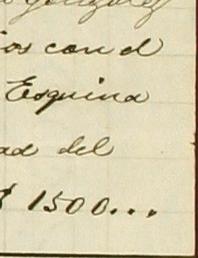 Gonzalez
ios con el
Esquina
ad del
$ 1500...